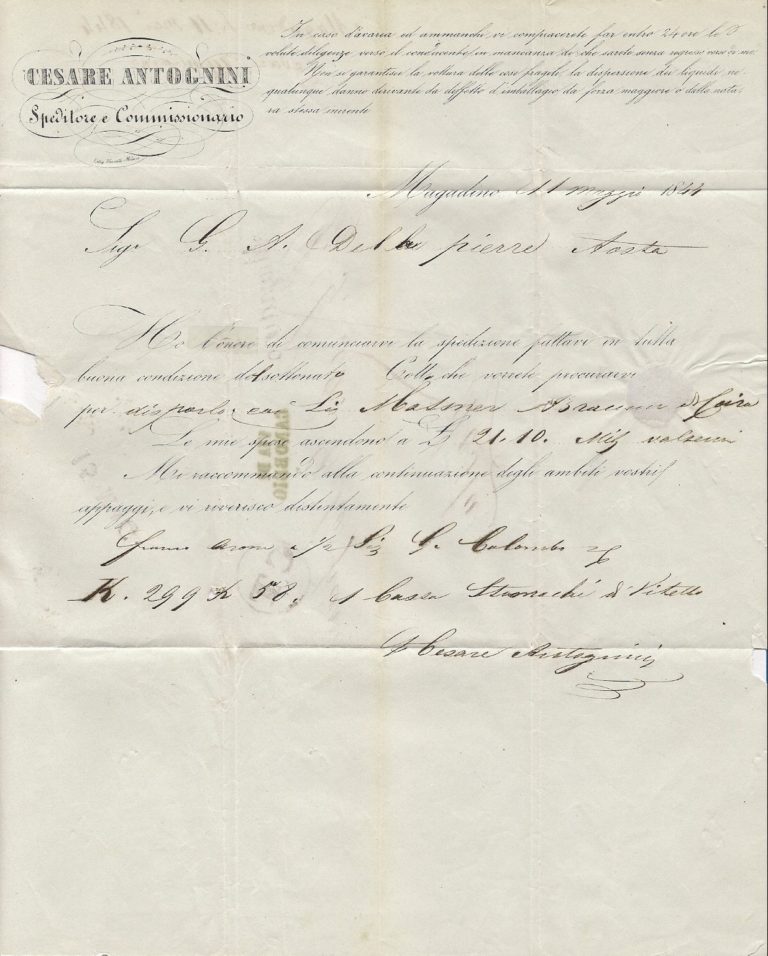 CESARE ANTOGNINI
Speditore e Commissionario
In caso d'avarea ed ammanchi vi compiacerete far entro 24 ore le
volute diligenze verso il conducente, in mancanza di che sarete senza regresso verso di me.
Non si garantisce la rottura delle cose fragili, la dispersione dei liquidi, ne
qualunque danno derivante da diffetto d'imballagio da forza maggiore o dalla natu=
ra stessa inerente
Magadino 11 maggio 1844
Sigr G. A. Delle pierre Aosta
Ho l'onore di comunicarvi la spedizione fattavi in tutta
buona condizione del sottonato Collo che vorrete procurarvi
per disporlo, con Sig Masner Abraam di Coira
Le mie spese ascendono a £ 21.10. Milo
Mi raccommando alla continuazione degli ambiti vostri
appoggi, e vi riverisco distintamente
franco Arona a 1/2 Sig G. Colombo
K. 299 K 58. 1 Cassa Stomachi di Vitello
Cesare Antognini
CANOBBIO